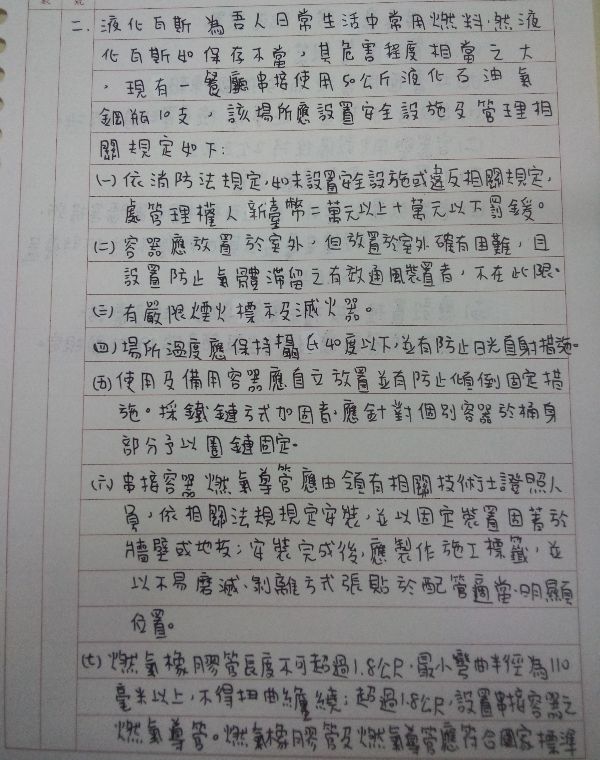 二、液化瓦斯為吾人日常生活中常用燃料,然液
化瓦斯如保存不當,其危害程度相當之大
,現有一餐廳串接使用50公斤液化石油氣
鋼瓶10支,該場所應設置安全設施及管理相
關規定如下:
(一)依消防法規定,如未設置安全設施或違反相關規定,
處管理權人新臺幣二萬元以上十萬元以下罰鍰。
(二)容器應放置於室外,但放置於室外確有困難,且
設置防止氣體滯留之有效通風裝置者,不在此限。
(三)有嚴限煙火標示及滅火器。
(四)場所溫度應保持攝氏40度以下,並有防止日光直射措施。
(五)使用及備用容器應直立放置並有防止傾倒固定措
施。採鐵鏈方式加固者,應針對個別容器於桶身
部分予以圈鏈固定。
(六)串接容器燃氣導管應由領有相關技術士證照人
員,依相關法規規定安裝,並以固定裝置固著於
牆壁或地板;安裝完成後,應製作施工標籤,並
以不易磨滅、剝離方式張貼於配管適當、明顯
位置。
(七)燃氣橡膠管長度不可超過1.8公尺,最小彎曲半徑為110
毫米以上,不得扭曲纏繞;超過1.8公尺,設置串接容器之
燃氣導管。燃氣橡膠管及燃氣導管應符合國家標準